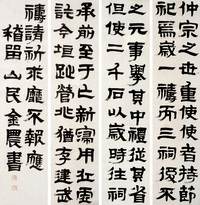 仲宗之世重使使者持節
祀焉歲一禱而三祠後不
之元事舉其中禮從其省
但使二千石以歲時往祠
承前至于亡新寖用丘虛
訖今垣趾營兆猶存建武
禱請祈求靡不報應
稽留山民金農書